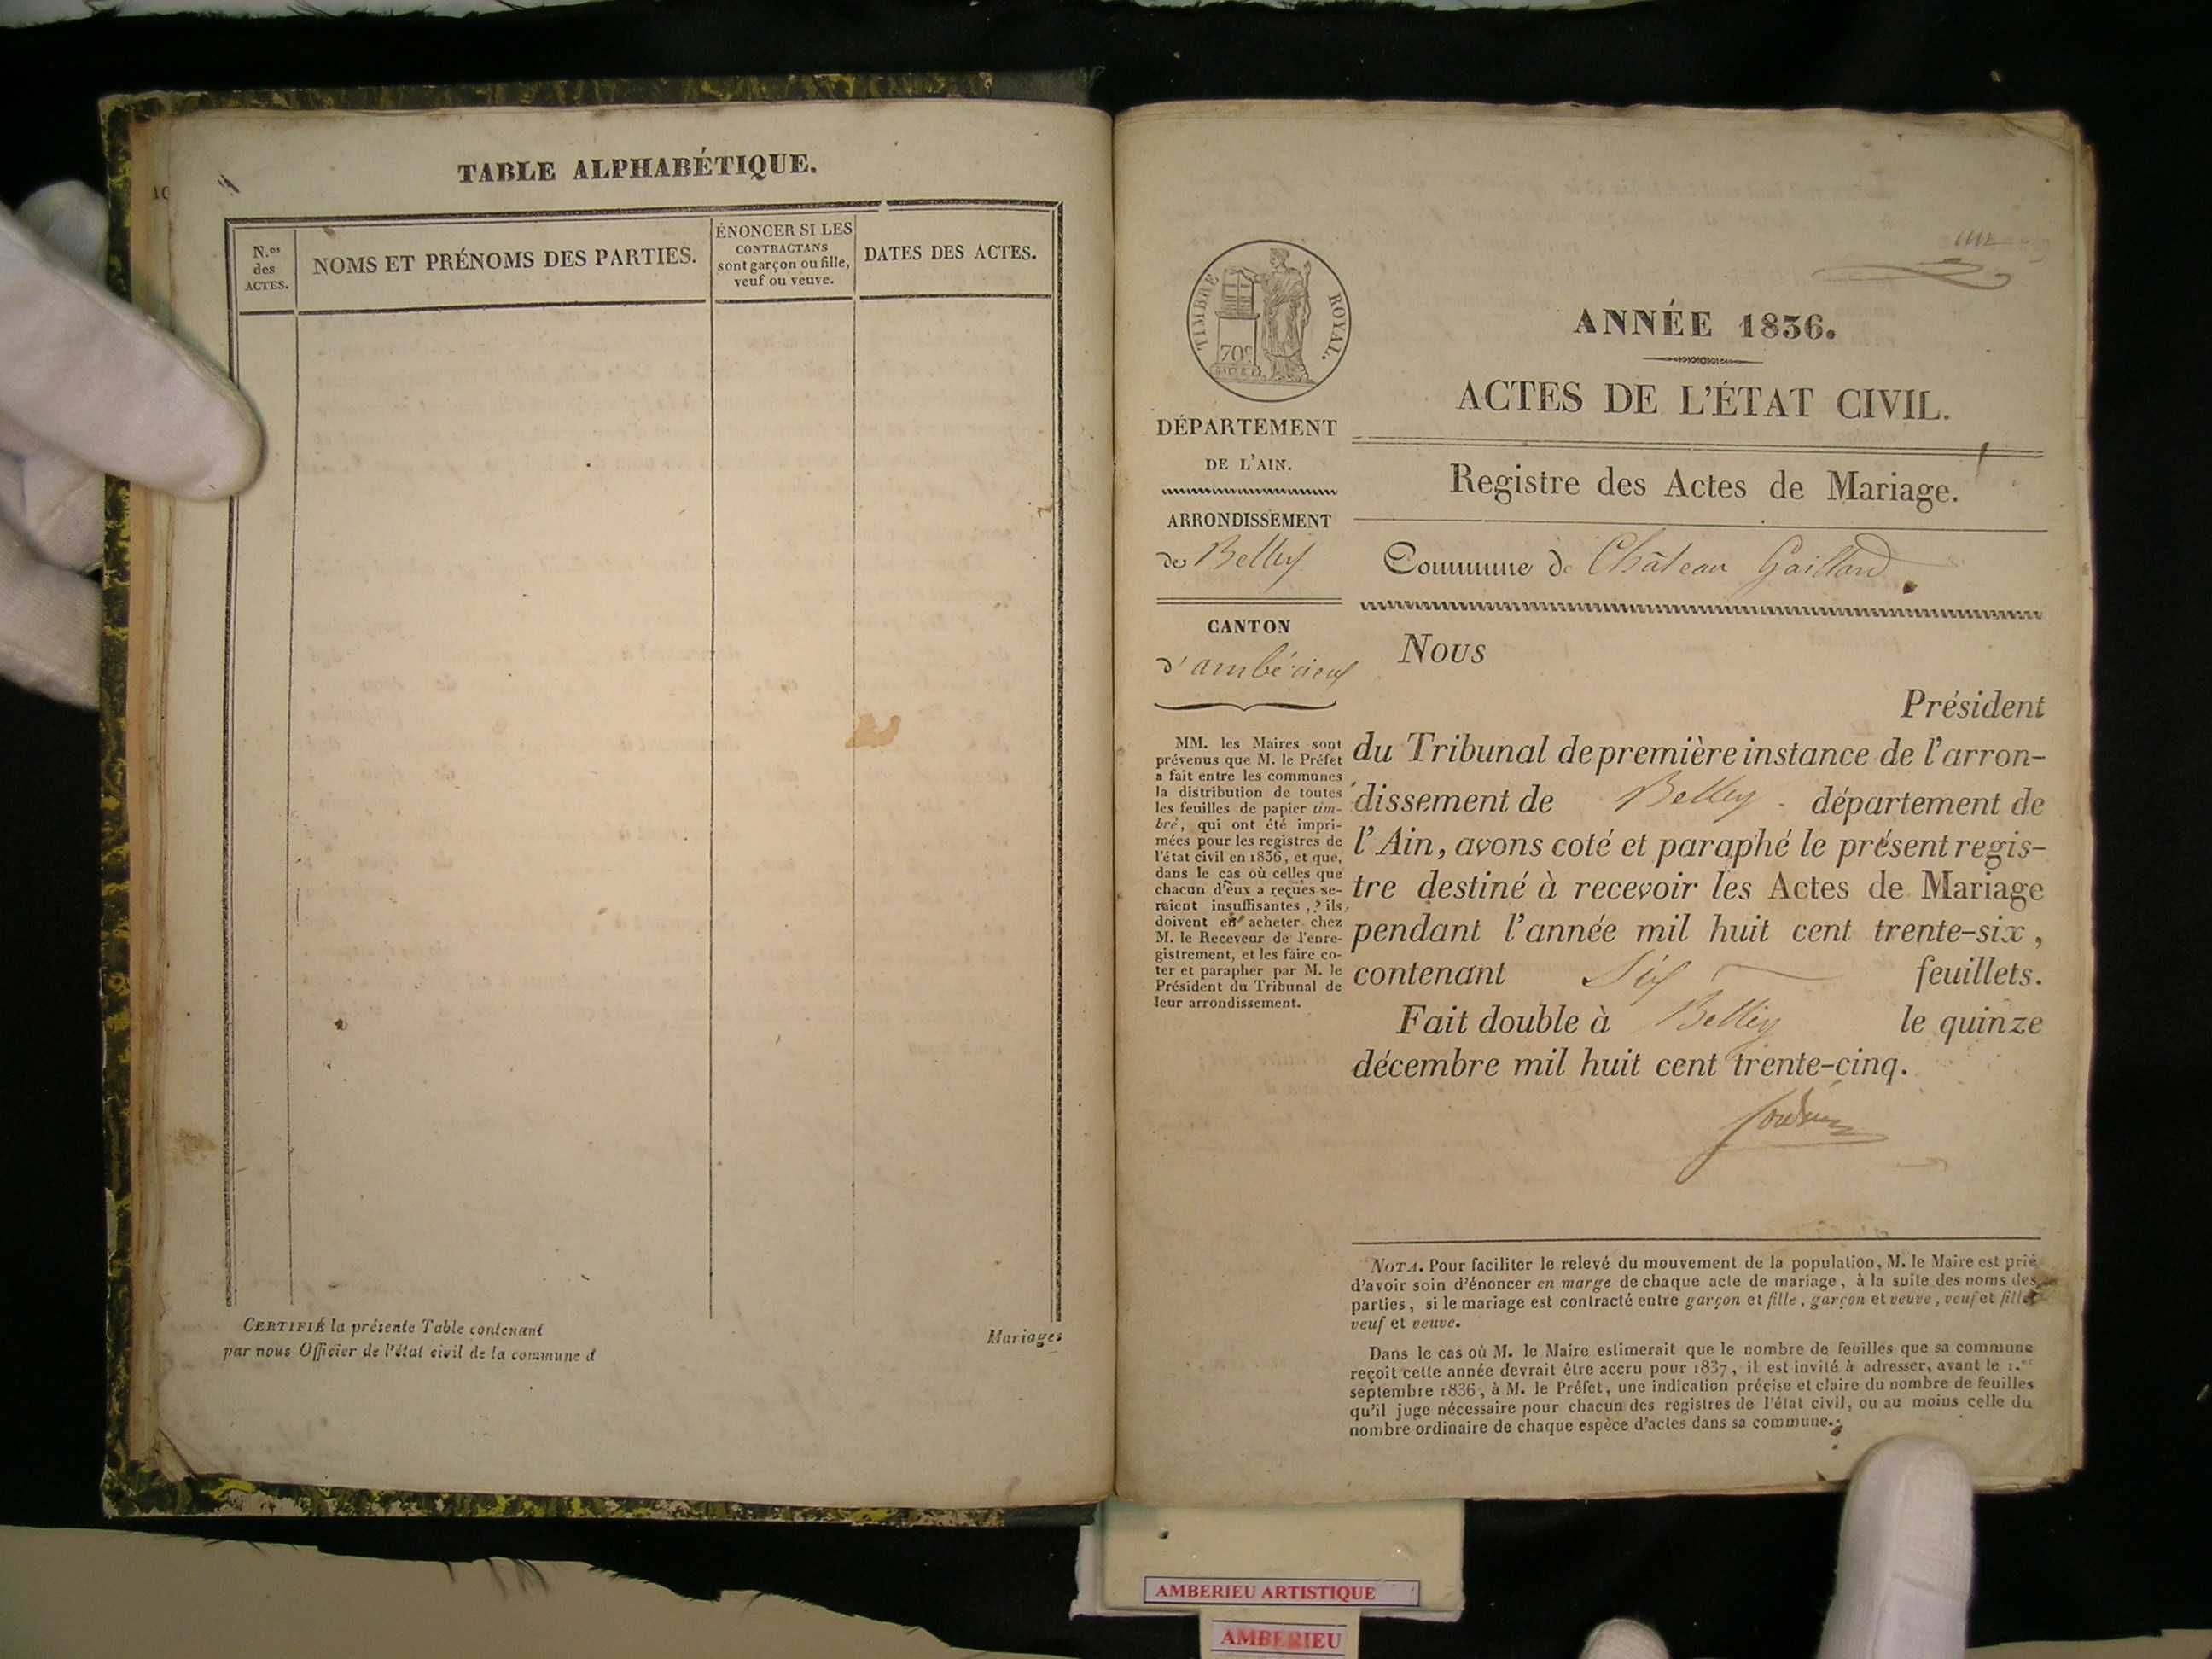 TABLE ALPHABÉTIQUE.
N.os
des
ACTES.
NOMS ET PRÉNOMS DES PARTIES.
ÉNONCER SI LES
CONTRACTANS
sont garçon ou fille,
veuf ou veuve.
DATES DES ACTES.
CERTIFIÉ la présente Table contenant
par nous Officier de l'état civil de la commune d
Mariages
TIMBRE ROYAL.
70c
ANNÉE 1836.
ACTES DE L'ÉTAT CIVIL.
DÉPARTEMENT
DE L'AIN.
Registre des Actes de Mariage.
ARRONDISSEMENT
de Belley
Commune de Château Gaillard
CANTON
d'ambérieux
MM. les Maires sont
prévenus que M. le Préfet
a fait entre les communes
la distribution de toutes
les feuilles de papier tim-
bré, qui ont été impri-
mées pour les registres de
l'état civil en 1836, et que,
dans le cas où celles que
chacun d'eux a reçues se-
raient insuffisantes, ils
doivent en acheter chez
M. le Receveur de l'enre-
gistrement, et les faire co-
ter et parapher par M. le
Président du Tribunal de
leur arrondissement.
Nous
Président
du Tribunal de première instance de l'arron-
dissement de Belley département de
l'Ain, avons coté et paraphé le présent regis-
tre destiné à recevoir les Actes de Mariage
pendant l'année mil huit cent trente-six,
contenant Six feuillets.
Fait double à Belley le quinze
décembre mil huit cent trente-cinq.
NOTA. Pour faciliter le relevé du mouvement de la population, M. le Maire est prié
d'avoir soin d'énoncer en marge de chaque acte de mariage, à la suite des noms des
parties, si le mariage est contracté entre garçon et fille, garçon et veuve, veuf et fille
veuf et veuve.
Dans le cas où M. le Maire estimerait que le nombre de feuilles que sa commune
reçoit cette année devrait être accru pour 1837, il est invité à adresser, avant le 1.er
septembre 1836, à M. le Préfet, une indication précise et claire du nombre de feuilles
qu'il juge nécessaire pour chacun des registres de l'état civil, ou au moins celle du
nombre ordinaire de chaque espèce d'actes dans sa commune.
AMBERIEU ARTISTIQUE
AMBERIEU